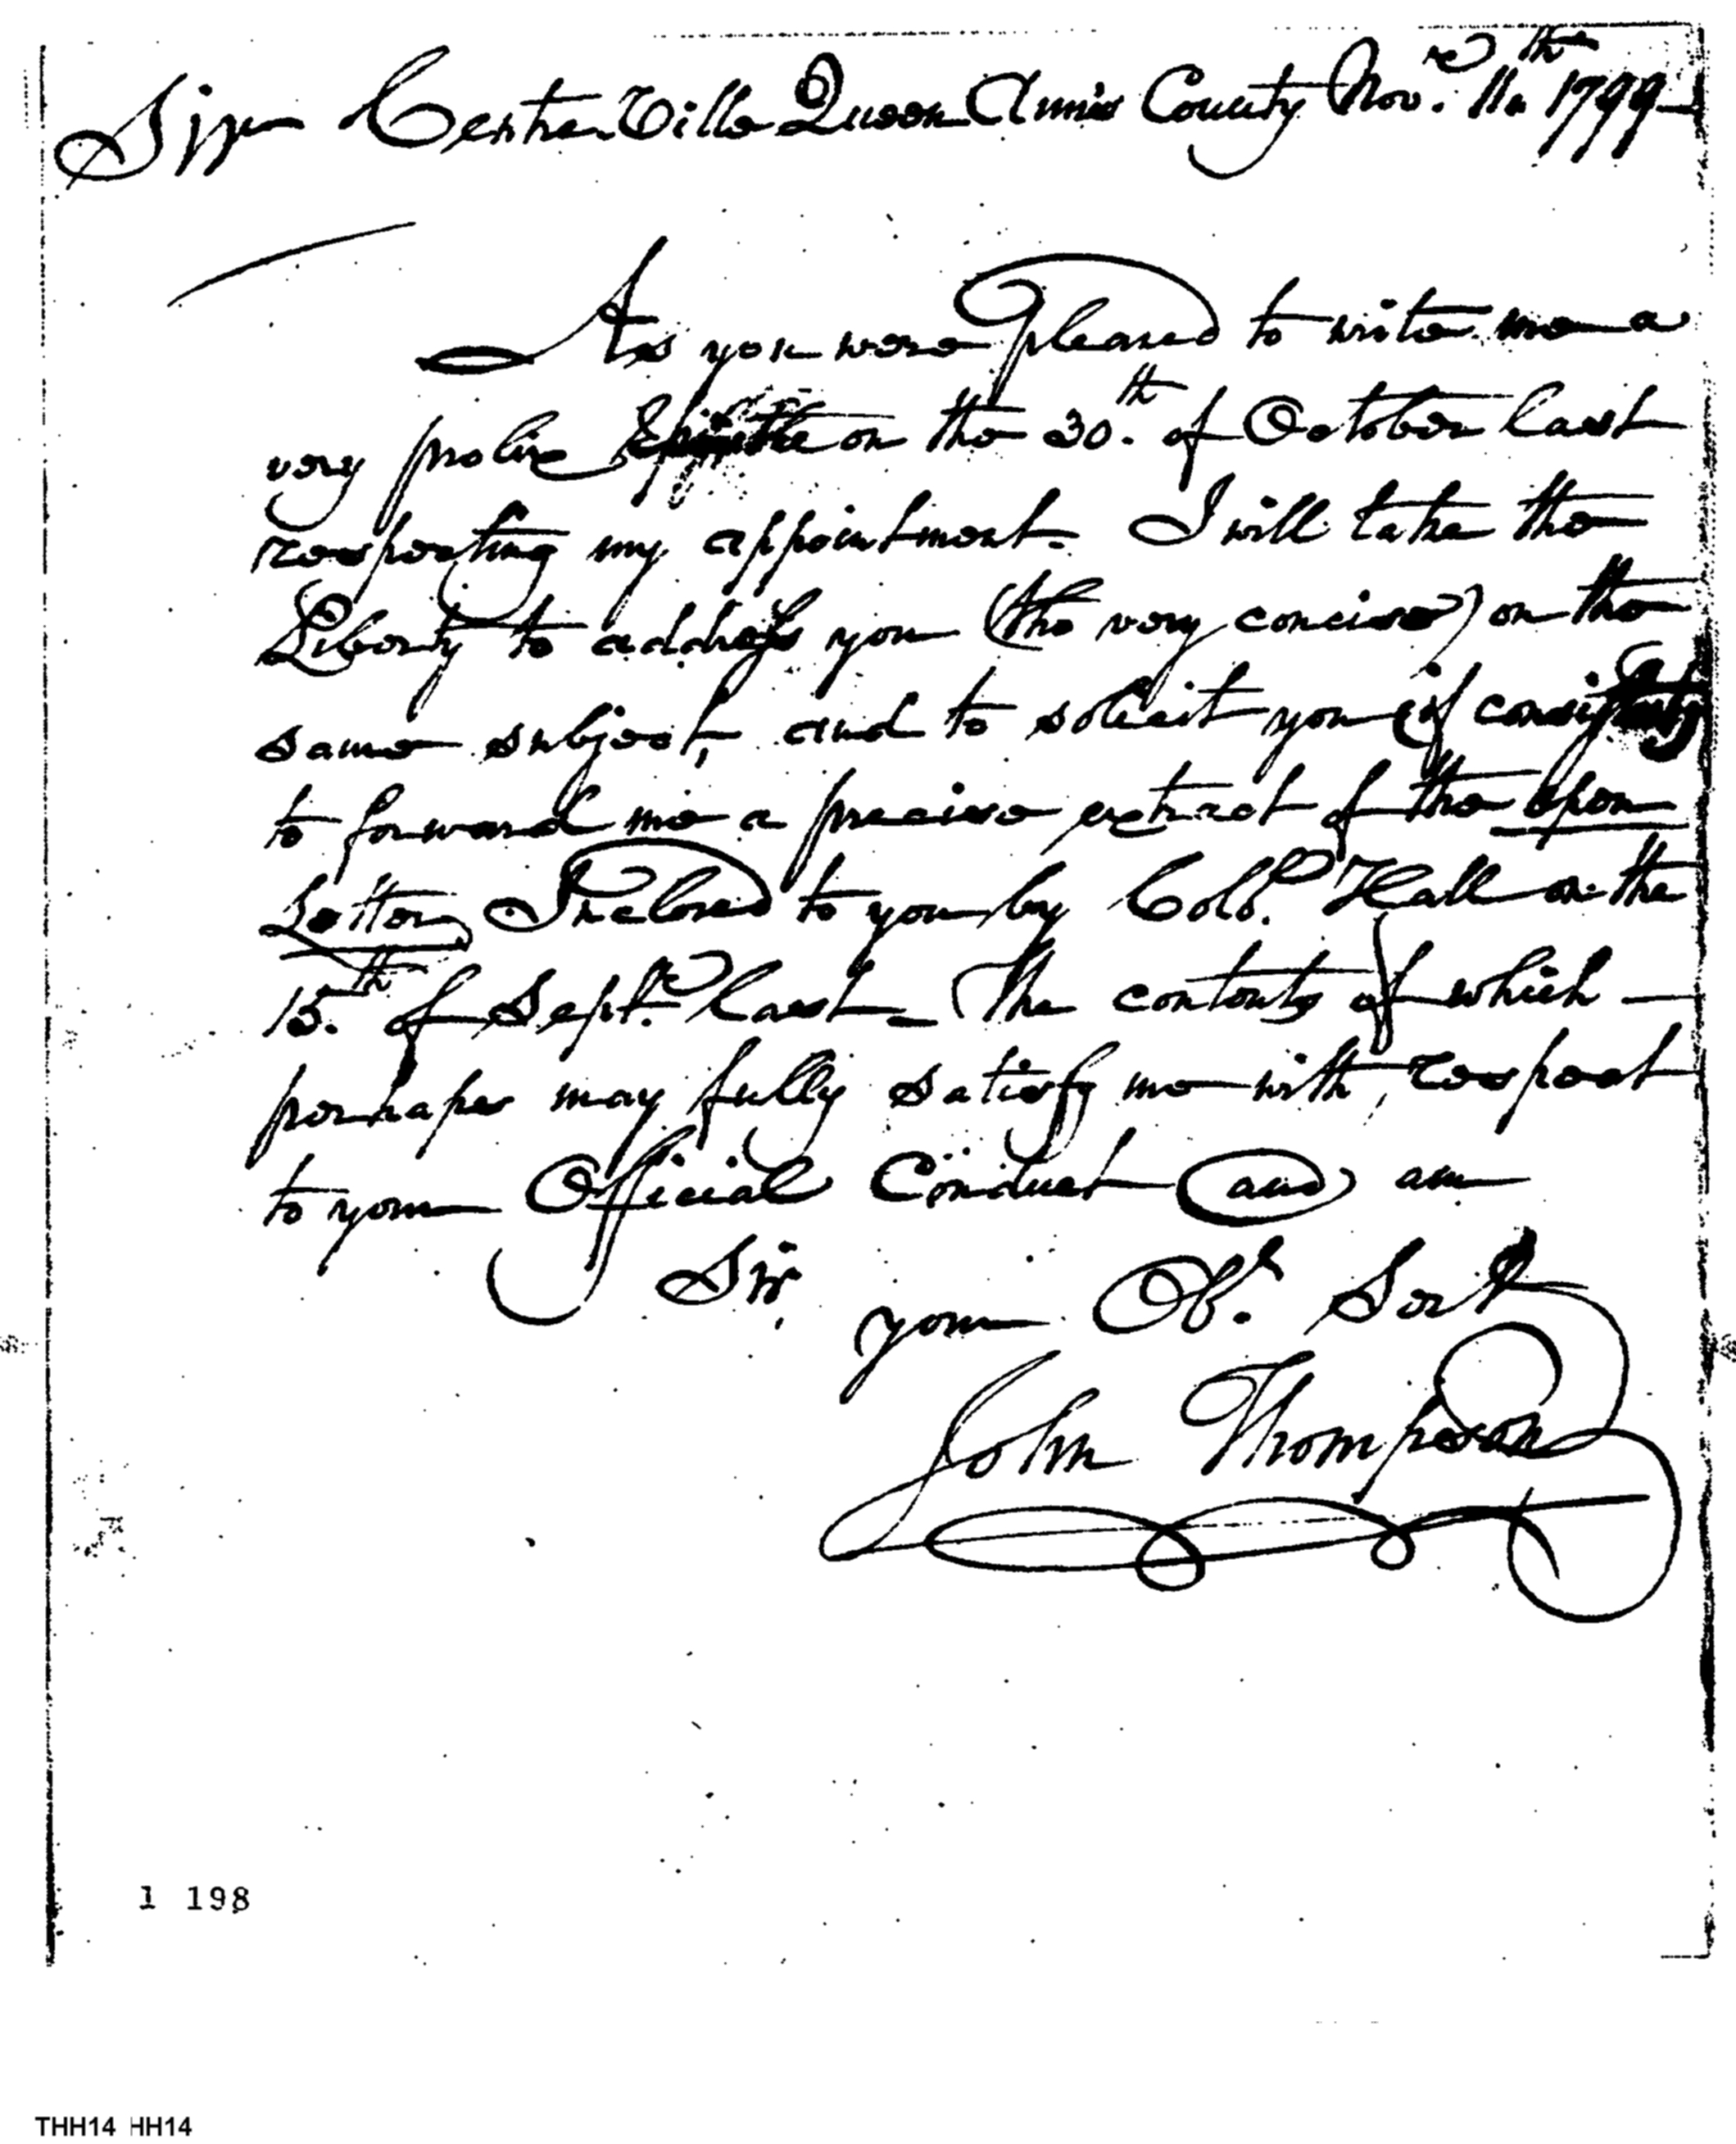 Sir Centre Ville Queen Ann's County Nov.r 11th 1799
As you were pleased to write me a
very prolix Epistle on the 30.th of October last
respecting my appointment. I will take the
Liberty to address you (tho very concise) on the
same subject, and to solicit you (if
to forward me a precise extract of the open
Letter Inclosed to you by Colo. Hall on the
15.th of Sept.r last - The contents of which -
perhaps may fully satisfy me with respect
to your Official Conduct and am
Sir,
your Ob.t Servt
John Thompson
1 198
THH14 HH14